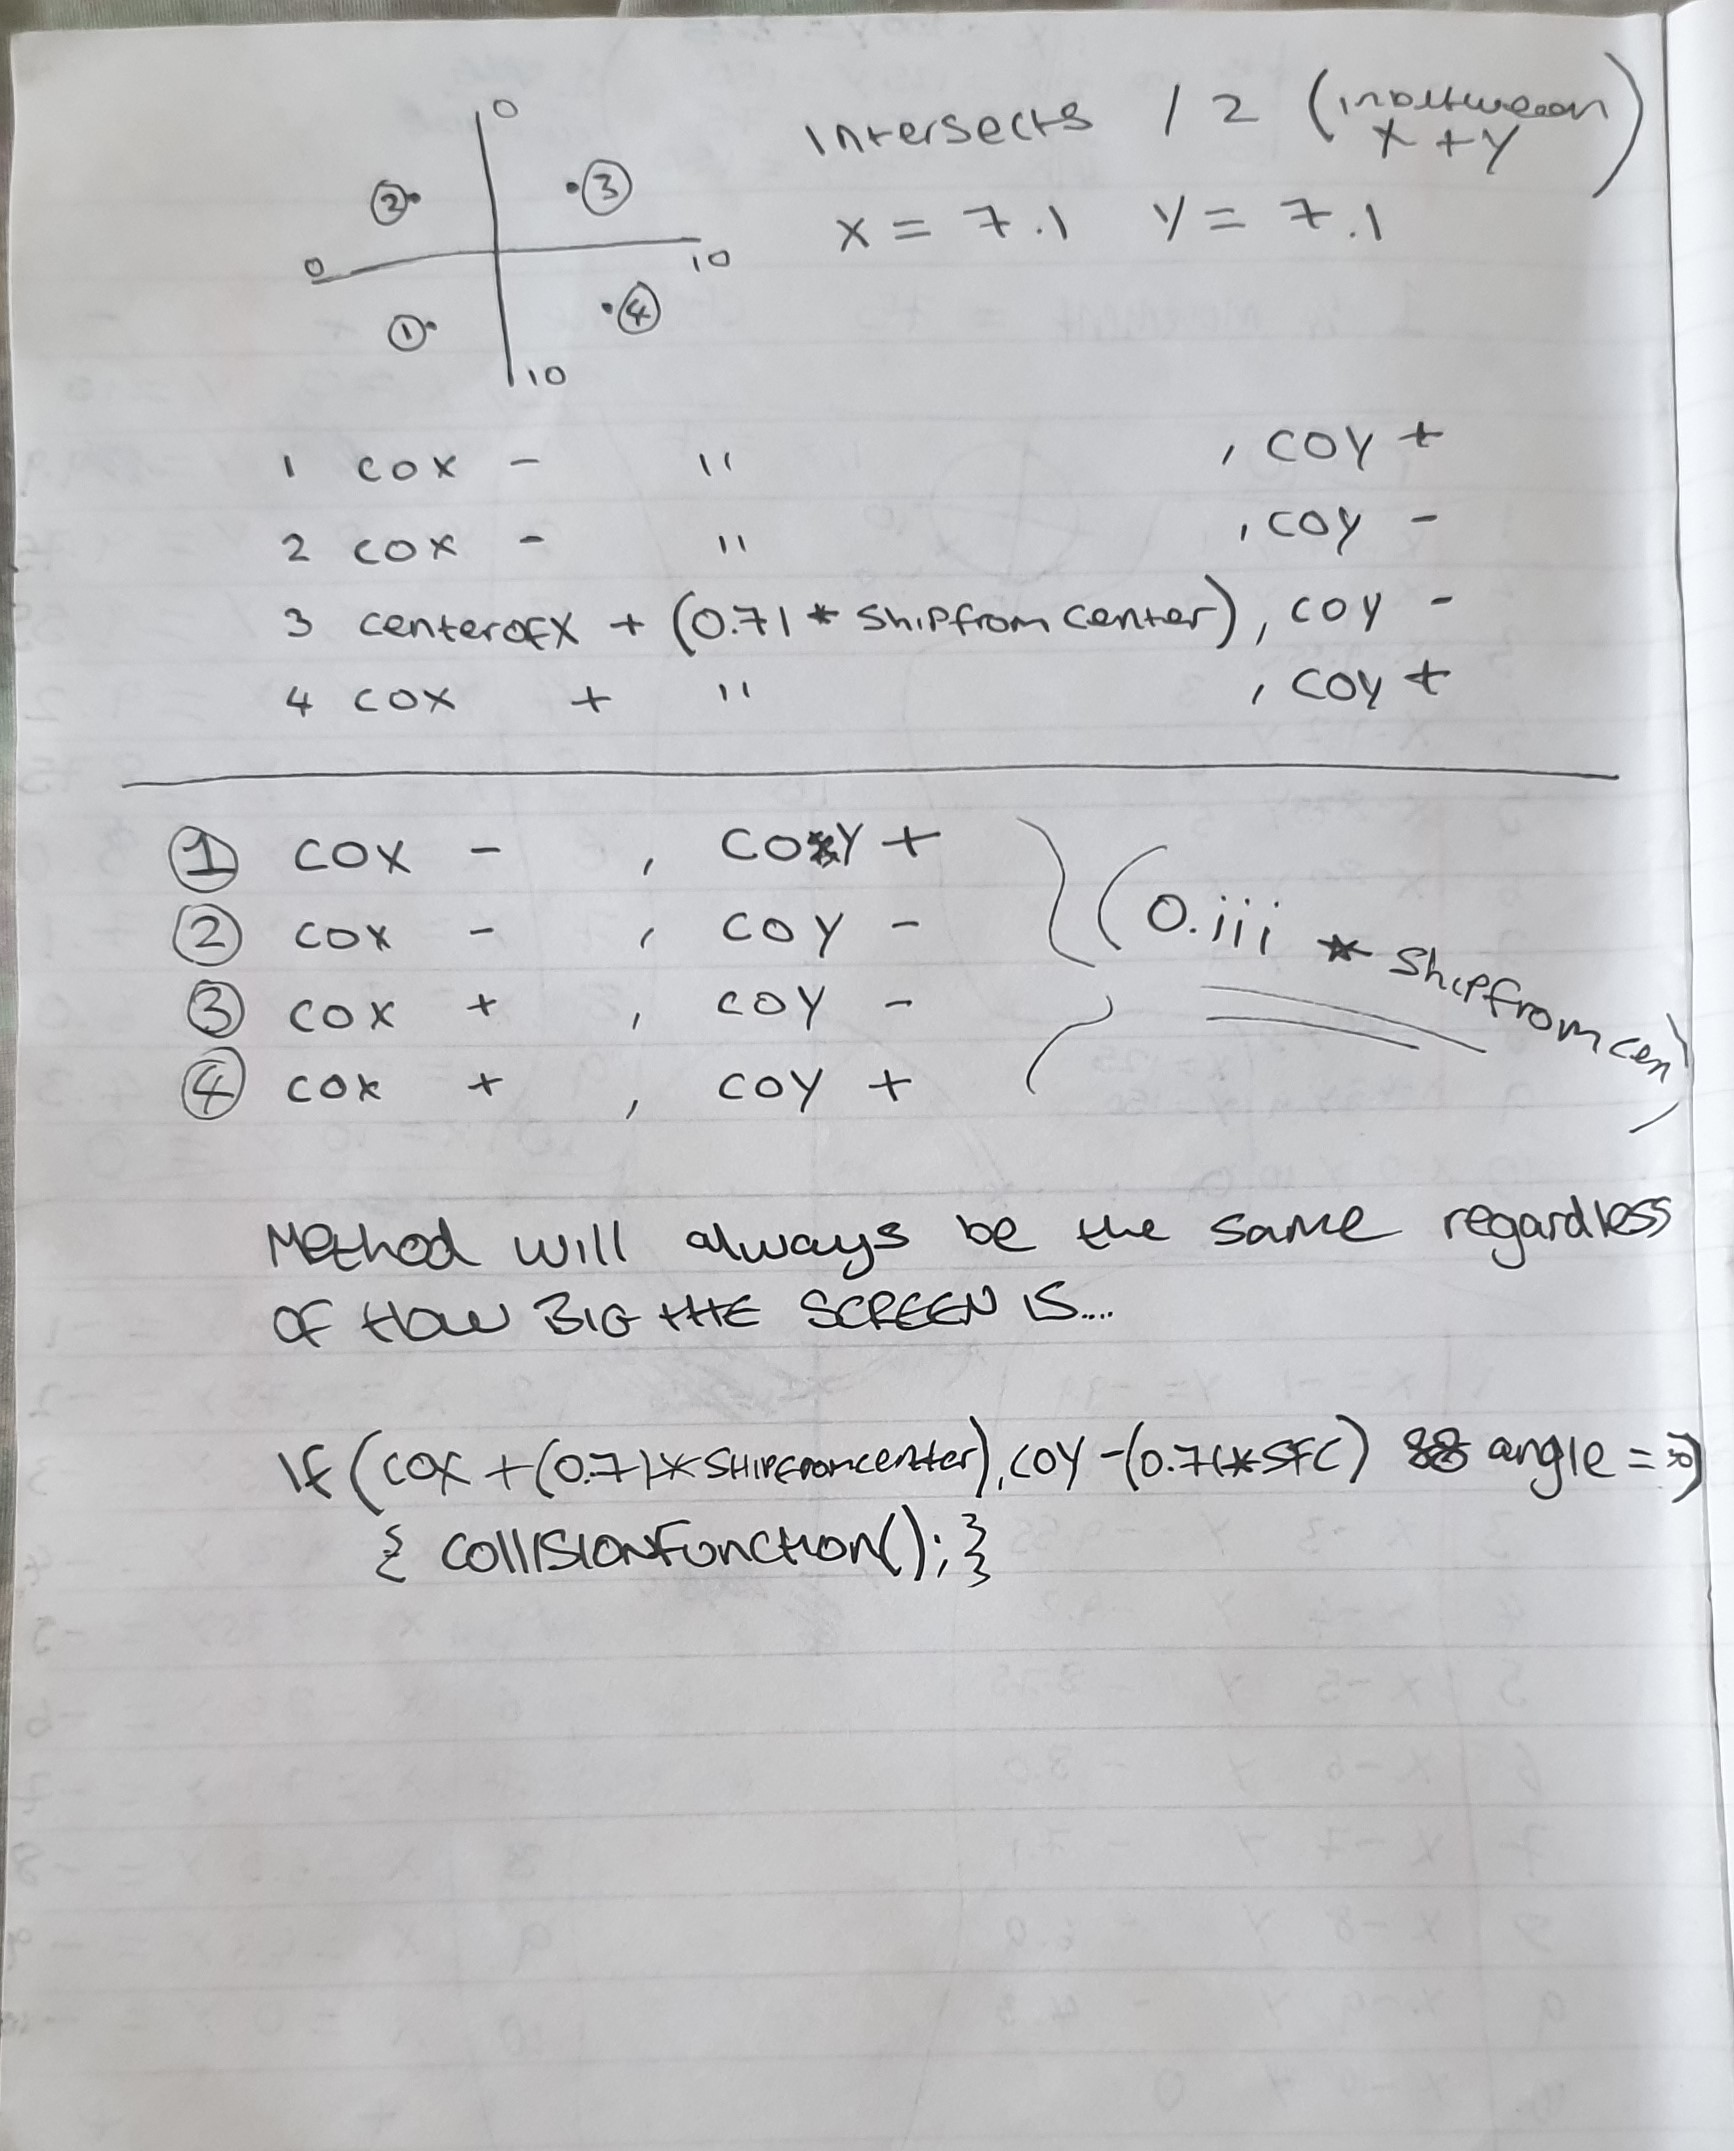 0
② ③
0 10
① ④
10
Intersects / 2 (inbetween
x + y)
x = 7.1 y = 7.1
1 cox - " , coy +
2 cox - " , coy -
3 centerofx + (0.71 * Shipfromcenter), coy -
4 cox + " , coy +
① cox - , coy +
② cox - , coy -
③ cox + , coy -
④ cox + , coy +
(0.iii * Shipfromcen)
Method will always be the same regardless
OF HOW BIG THE SCREEN IS....
If (cox + (0.71*Shipfromcenter), coy - (0.71*SFC) && angle =
{ collisionFunction(); }